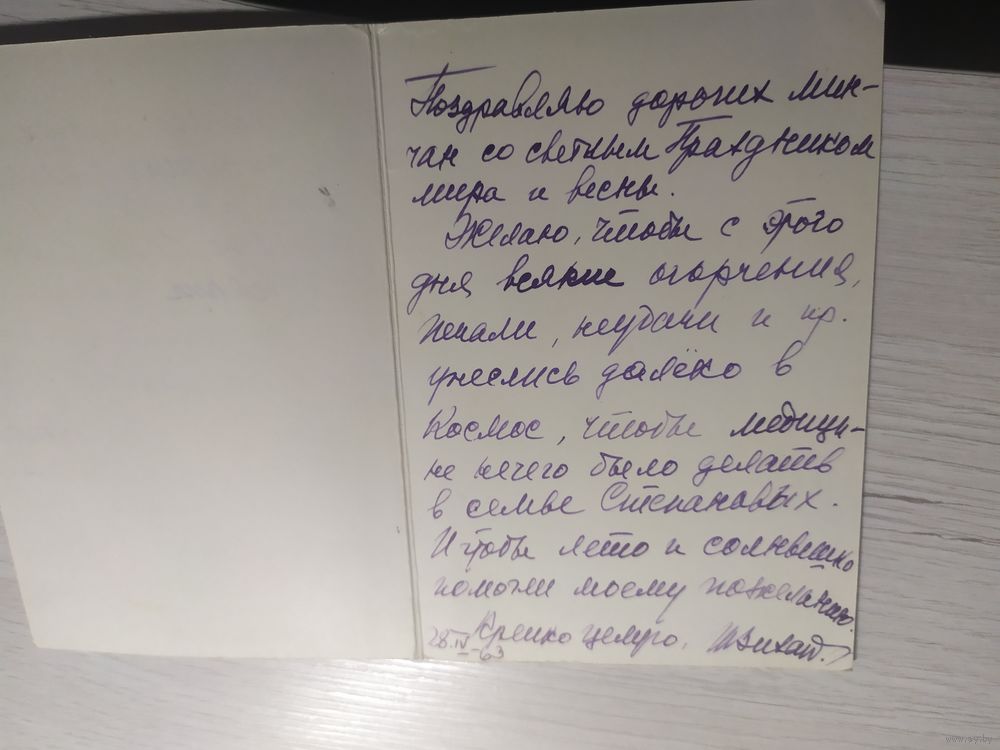 Поздравляю дорогих мин-
чан со светлым Праздником
мира и весны.
Желаю, чтобы с этого
дня всякие огорчения,
печали, неудачи и пр.
унеслись далёко в
Космос, чтобы медици-
не нечего было делать
в семье Степановых.
И чтобы лето и солнышко
помогли моему пожеланию.
Крепко целую.
28.IV-63
www.ay.by